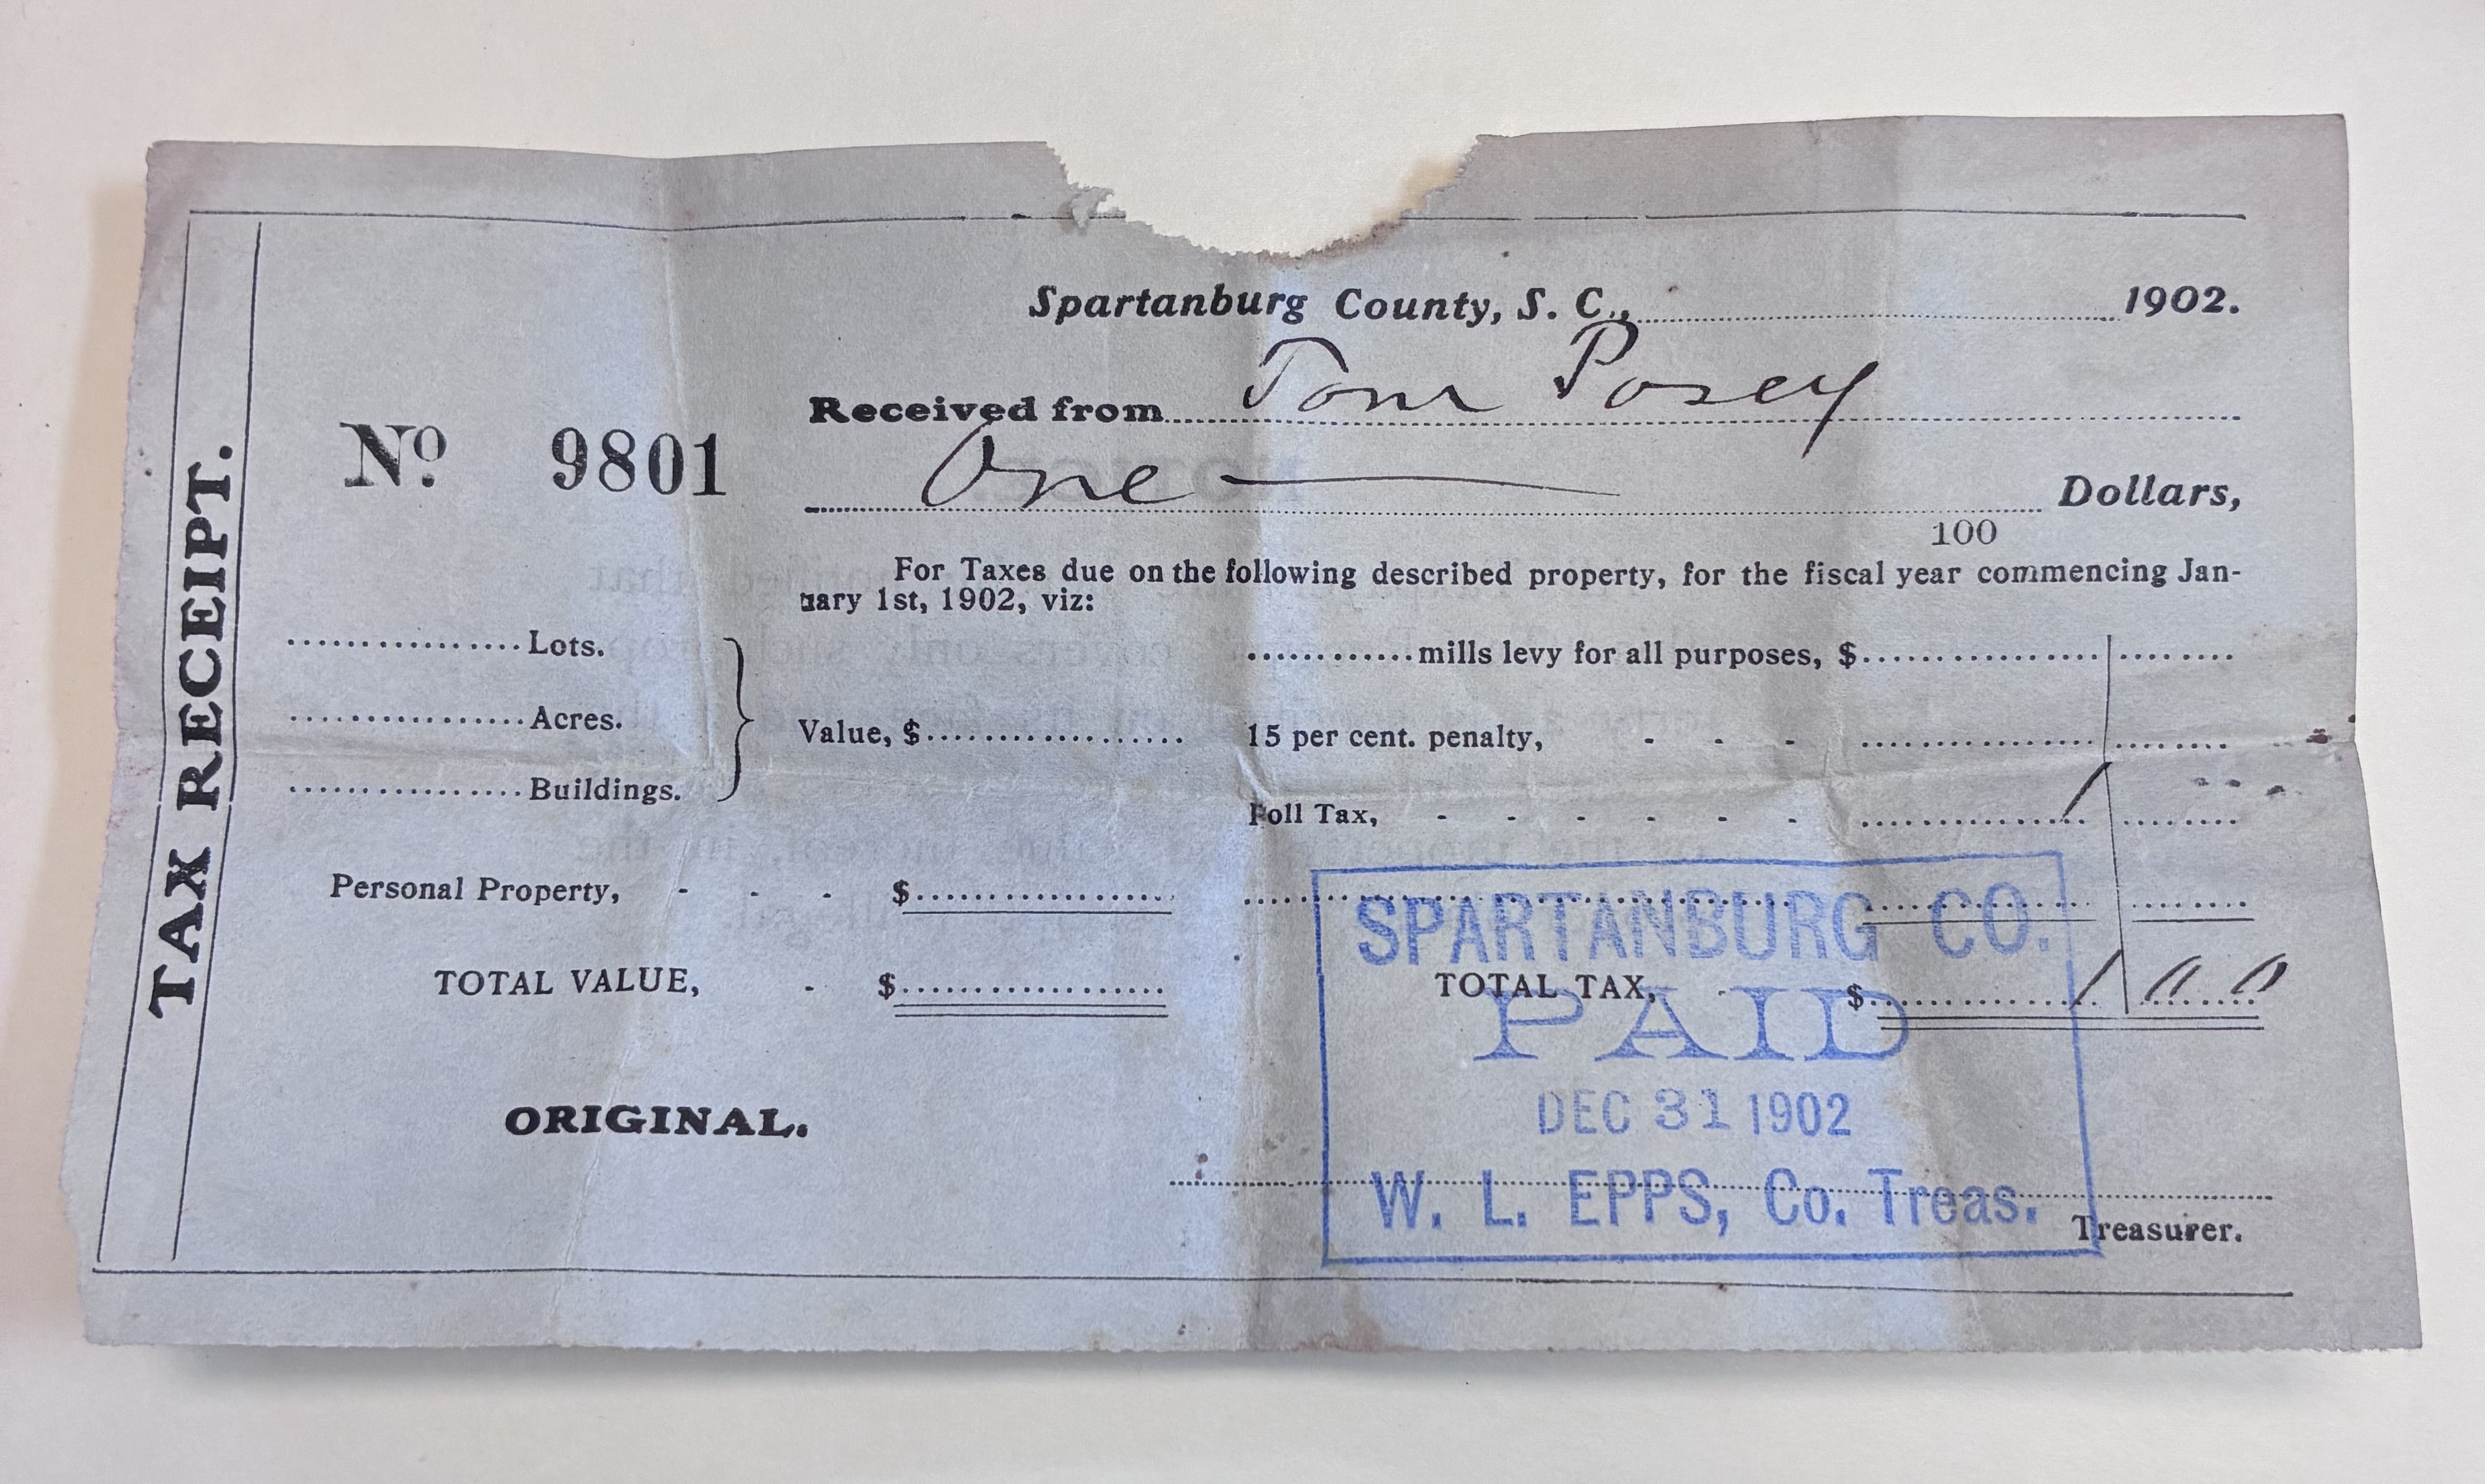 TAX RECEIPT.
Spartanburg County, S. C., 1902.
Received from Tom Posey
No. 9801
One Dollars,
100
For Taxes due on the following described property, for the fiscal year commencing Jan-
uary 1st, 1902, viz:
Lots.
mills levy for all purposes, $
Acres.
Value, $
15 per cent. penalty, - - -
Buildings.
Poll Tax, - - - - - - 1
Personal Property, - - - $
SPARTANBURG CO.
TOTAL VALUE, - $
TOTAL TAX, - $ 1 00
PAID
DEC 31 1902
ORIGINAL.
W. L. EPPS, Co. Treas.
Treasurer.